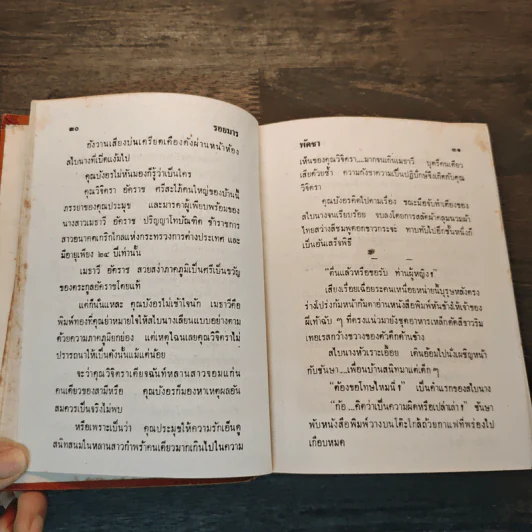 ๒๐
รอยมาร
ยังวานเสียงบ่นเครียดเคืองดังผ่านหน้าห้อง
สไบนางที่เปิดแง้มไป
คุณบังอรไม่หันมองก็รู้ว่าเป็นใคร
คุณวิจิตรา อัครราช ศรีสะใภ้คนใหญ่ของบ้านนี้
ภรรยาของคุณประมุข และมารดาผู้เพียบพร้อมของ
นางสาวเมธาวี อัครราช ปริญญาโทบัณฑิต ข้าราชการ
สาวอนาคตเกริกไกลแห่งกระทรวงการต่างประเทศ และ
มีอายุเพียง ๒๔ ปีเท่านั้น
เมธาวี อัครราช สวยสง่าภาคภูมิเป็นศรีเป็นขวัญ
ของตระกูลอัครราชโดยแท้
แต่ก็นั่นแหละ คุณบังอรไม่เข้าใจนัก เมธาวีคือ
พิมพ์ทองที่คุณย่าหมายใจให้สไบนางเลียนแบบอย่างตาม
ด้วยความภาคภูมิยกย่อง แต่เหตุไฉนเลยคุณวิจิตราไม่
ปรารถนาให้เป็นดังนั้นแม้แต่น้อย
จะว่าคุณวิจิตราเคียดฉันท์หลานสาวจอมแก่น
คนเดียวของสามีหรือ คุณบังอรก็มองหาเหตุผลอัน
สมควรเป็นจริงไม่พบ
หรือเพราะเป็นว่า คุณประมุขให้ความรักเอ็นดู
สนิทสนมในหลานสาวกำพร้าคนเดียวมากเกินไปในความ
พัดชา
๒๑
เห็นของคุณวิจิตรา...มากจนเกินเมธาวี บุตรีคนเดียว
เสียด้วยซ้ำ ความกังขาความเป็นปฏิปักษ์จึงเกิดกับคุณ
วิจิตรา
คุณบังอรคิดไปตามเรื่อง ขณะมือจับคำเคืองของ
สไบนางจนเรียบร้อย จบลงโดยการสลัดผ้าคลุมนวมผ้า
ไทยสว่างสีชมพูดอกขาวกระจ่าง ทาบทับไปอีกชั้นหนึ่งก็
เป็นอันเสร็จพิธี
“ตื่นแล้วหรือขอรับ ท่านผู้หญิง”
เสียงเรื่อยเฉื่อยระคนเหนื่อยหน่ายนี้บุรุษหลังตรง
ร่างโปร่งก้มหน้าก้มตาอ่านหนังสือพิมพ์หันข้างให้เจ้าของ
ฝีเท้าฉับ ๆ ที่ตรงแน่วมายังชุดอาหารเหล็กดัดสีขาวริม
เทอเรสกว้างขวางของตัวตึกด้านข้าง
สไบนางหัวเราะเอื้อย เดินอ้อมไปนั่งเผชิญหน้า
กับชันษา...เพื่อนบ้านสนิทมาแต่เด็ก ๆ
“ต้องขอโทษไหมนี่” เป็นคำแรกของสไบนาง
“ก้อ...คิดว่าเป็นความผิดหรือเปล่าเล่า” ชันษา
พับหนังสือพิมพ์วางบนโต๊ะใกล้ถ้วยกาแฟที่พร่องไป
เกือบหมด